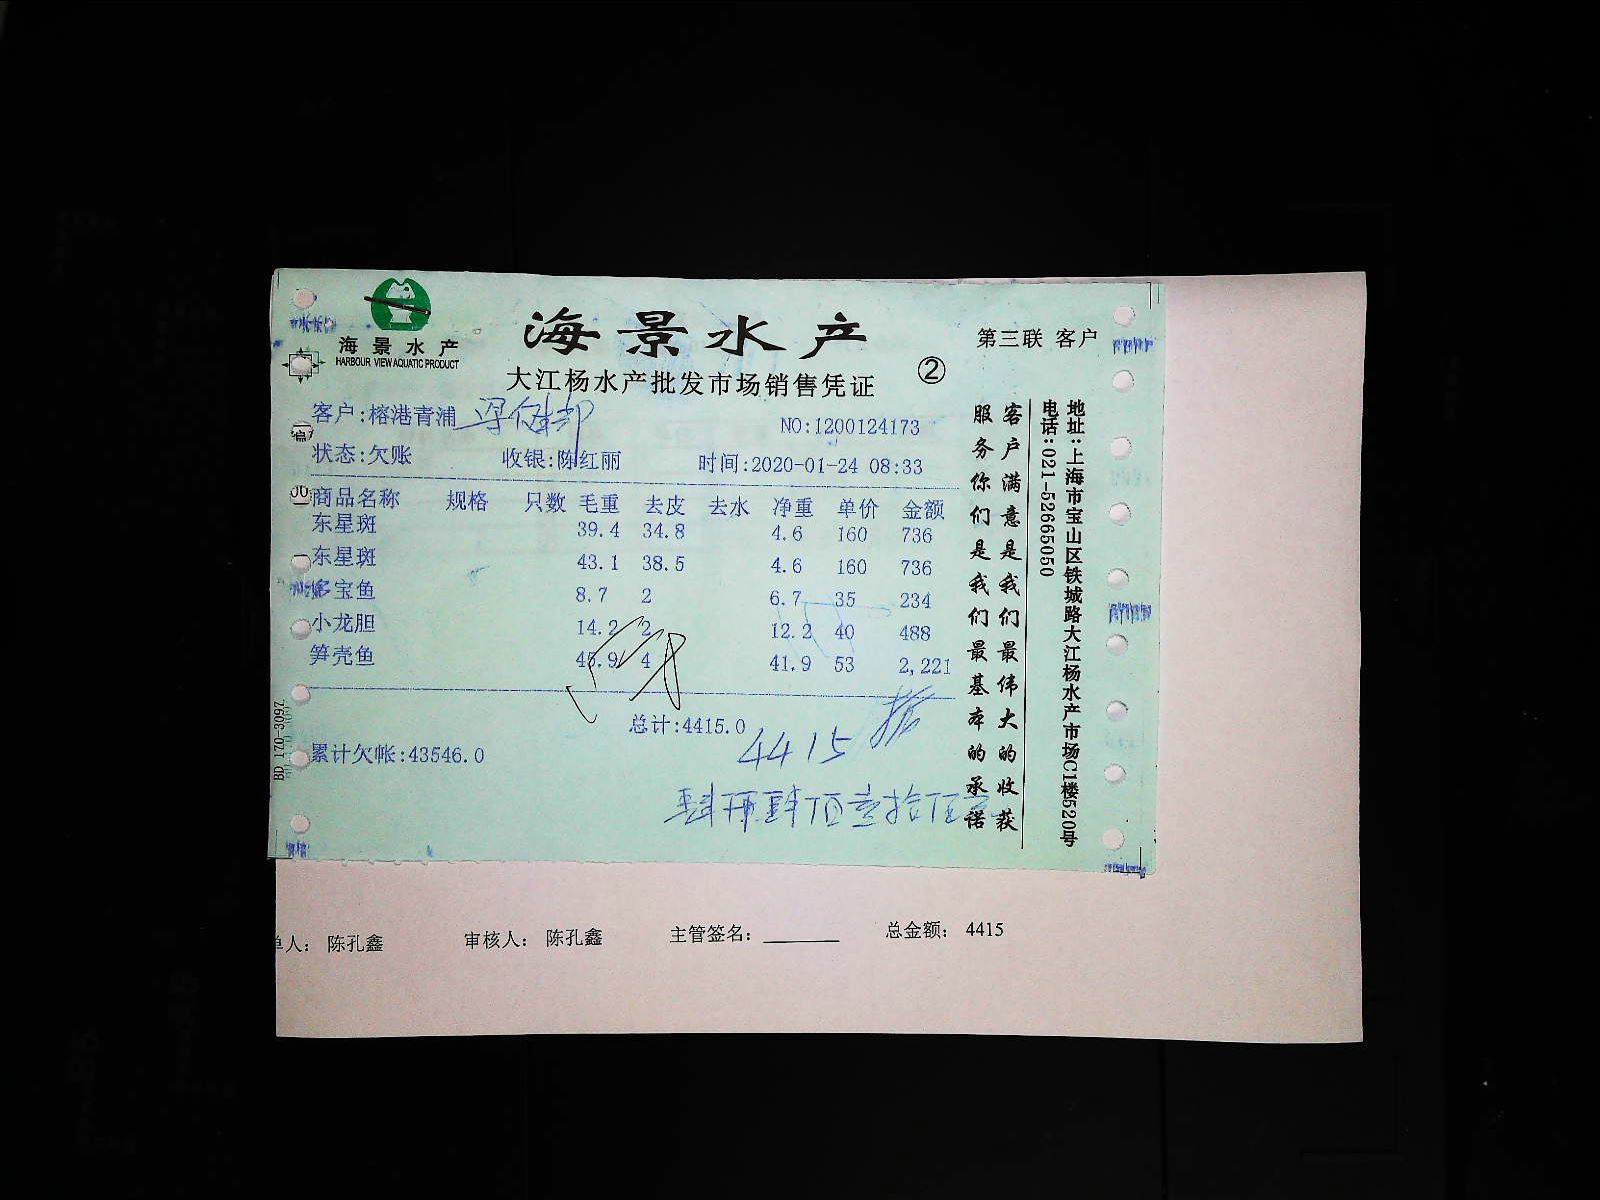 海景水产
HARBOUR VIEW AQUATIC PRODUCT
海景水产
大江杨水产批发市场销售凭证
②
第三联 客户
客户:榕港青浦
NO:1200124173
状态:欠账 收银:陈红丽 时间:2020-01-24 08:33
商品名称 规格 只数 毛重 去皮 去水 净重 单价 金额
东星斑 39.4 34.8 4.6 160 736
东星斑 43.1 38.5 4.6 160 736
多宝鱼 8.7 2 6.7 35 234
小龙胆 14.2 2 12.2 40 488
笋壳鱼 45.9 4 41.9 53 2,221
总计:4415.0
4415
累计欠帐:43546.0
肆仟肆佰壹拾伍元
客户满意是我们最伟大的收获
服务你们是我们最基本的承诺
地址:上海市宝山区铁城路大江杨水产市场C1楼520号
电话:021-52665050
BD 170-3097
单人: 陈孔鑫 审核人: 陈孔鑫 主管签名: 总金额: 4415